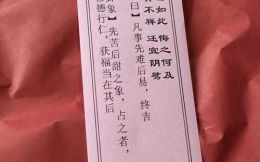 如此 悔之何及
不祥 还宜阴骘
曰】凡事先难后易，终吉
象】先苦后甜之象，占之者，
德行仁，获福当在其后